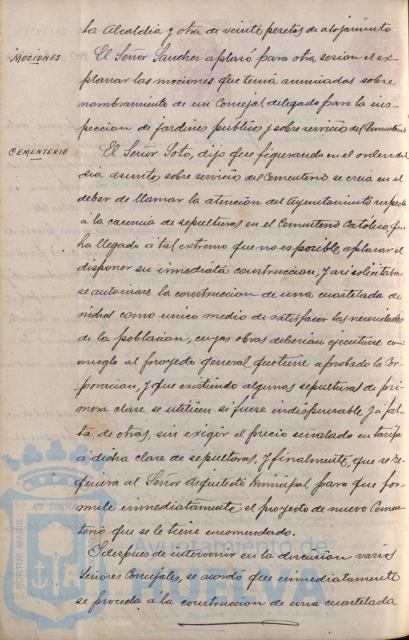 la Alcaldia y otra de veinte pesetas de alojamiento
MOCIONES
El Señor Sanchez aplazó para otra sesion el ex-
planar las mociones que tenia anunciadas sobre
nombramiento de un Concejal delegado para la ins-
peccion de jardines públicos y sobre servicio del Cementerio
CEMENTERIO
El Señor Soto, dijo que figurando en el orden del
dia asunto sobre servicio del Cementerio se creia en el
deber de llamar la atencion del Ayuntamiento respecto
á la carencia de sepulturas en el Cementerio Católico, que
ha llegado á tal extremo que no es posible aplazar el
disponer su inmediata construccion, y asi solicitaba
se autorizara la construccion de una cuartelada de
nichos como unico medio de satisfacer las necesidades
de la poblacion, cuyas obras deberian ejecutarse con
arreglo al proyecto general que tiene aprobado la Cor-
poracion, y que existiendo algunas sepulturas de pri-
mera clase se utilicen si fuese indispensable y á fal-
ta de otras, sin exigir el precio señalado en tarifa
á dicha clase de sepulturas, y finalmente, que se re-
quiera al Señor Arquitecto Municipal para que for-
mule inmediatamente el proyecto de nuevo Cemen-
terio que se le tiene encomendado.
Y despues de intervenir en la discusion varios
Señores Concejales, se acordo que inmediatamente
se proceda á la construccion de una cuartelada
PORTUS MARIS
Ayuntamiento de
HUELVA